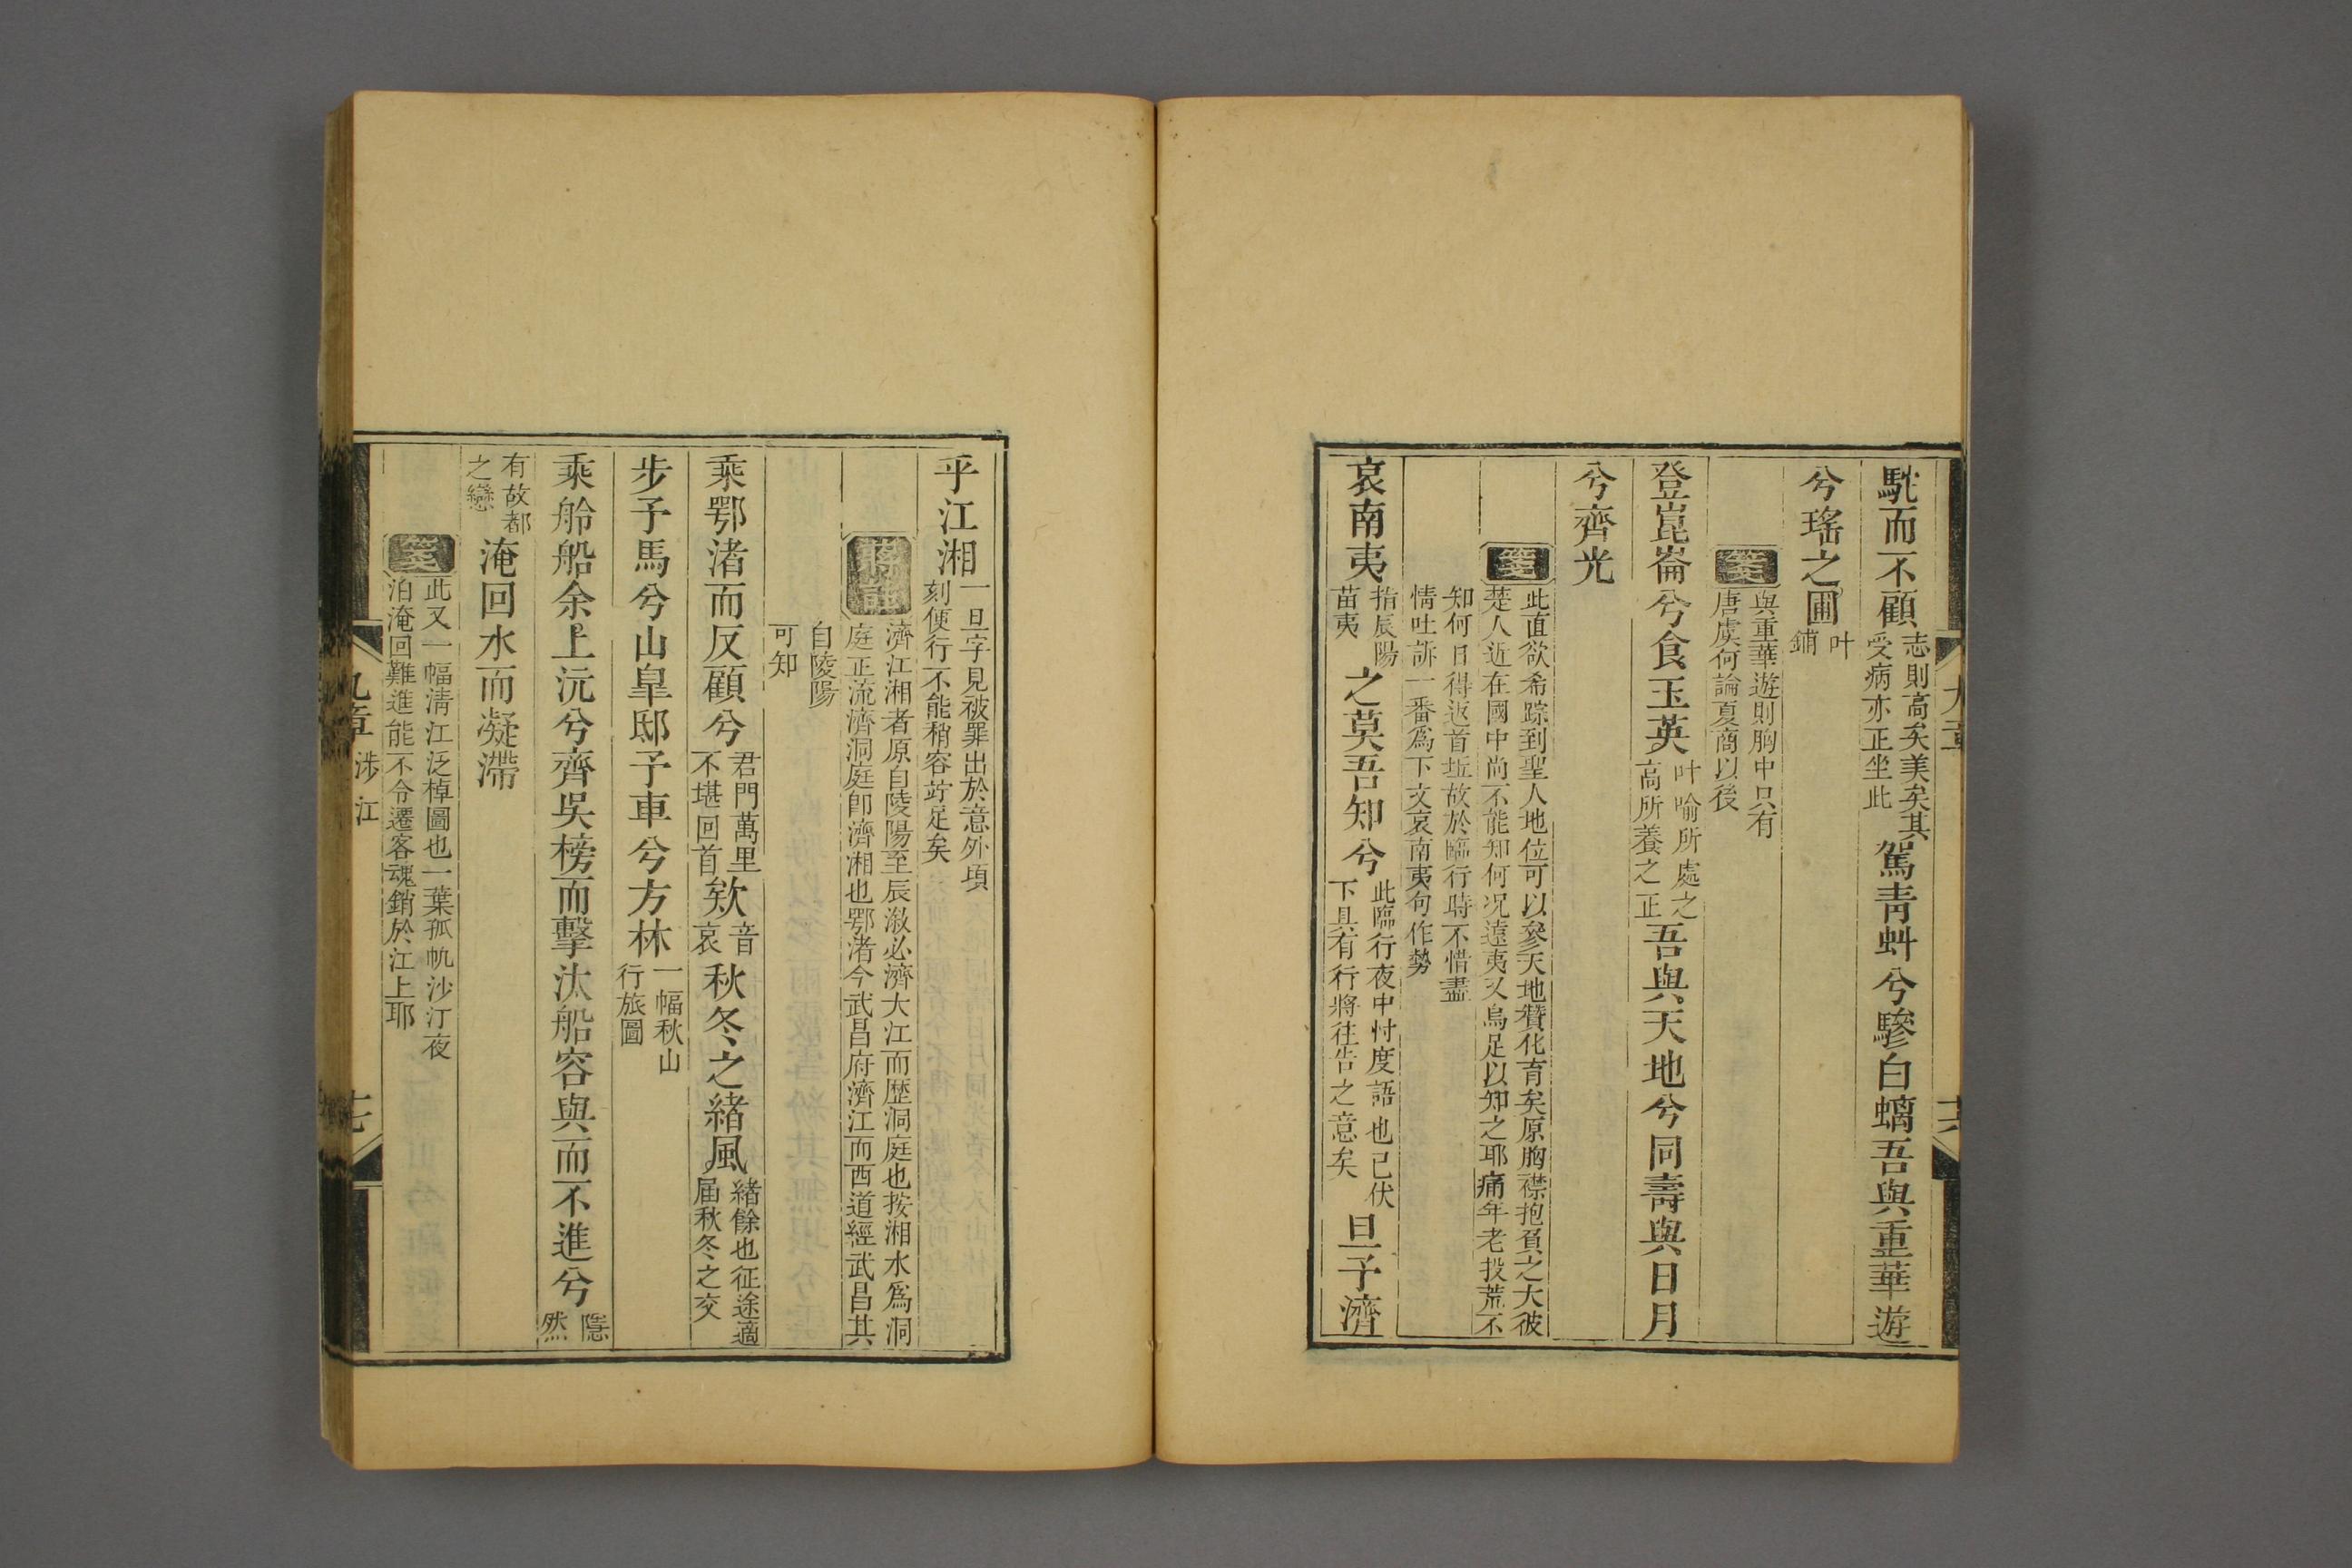 馳而不顧志則高矣美矣其受病亦正坐此駕青虯兮驂白螭吾與重華遊
兮瑤之圃叶鋪
箋與重華遊則胸中只有唐虞何論夏商以後
登崑崙兮食玉英叶喻所處之高所養之正吾與天地兮同壽與日月
兮齊光
箋此直欲希踪到聖人地位可以參天地贊化育矣原胸襟抱負之大彼楚人近在國中尚不能知何况遠夷又烏足以知之耶痛年老投荒不
知何日得返首坵故於臨行時不惜盡情吐訴一番為下文哀南夷句作勢
哀南夷指辰陽苗夷之莫吾知兮此臨行夜中忖度語也已伏下具有行將往告之意矣旦予濟
九章
十六
乎江湘一旦字見被罪出於意外頃刻便行不能稍容竚足矣
濟江湘者原自陵陽至辰漵必濟大江而歷洞庭也按湘水為洞庭正流濟洞庭即濟湘也鄂渚今武昌府濟江而西道經武昌其
自陵陽可知
乘鄂渚而反顧兮君門萬里不堪回首欸音哀秋冬之緒風緒餘也征途適屆秋冬之交
步予馬兮山皐邸予車兮方林一幅秋山行旅圖
乘舲船余上沅兮齊吳榜而擊汰船容與而不進兮隱然
有故都之戀淹回水而凝滯
箋此又一幅清江泛棹圖也一葉孤帆沙汀夜泊淹回難進能不令遷客魂銷於江上耶
九章 涉江
十七